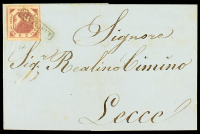 Signore
Sig.r Realino Cimino
Lecce